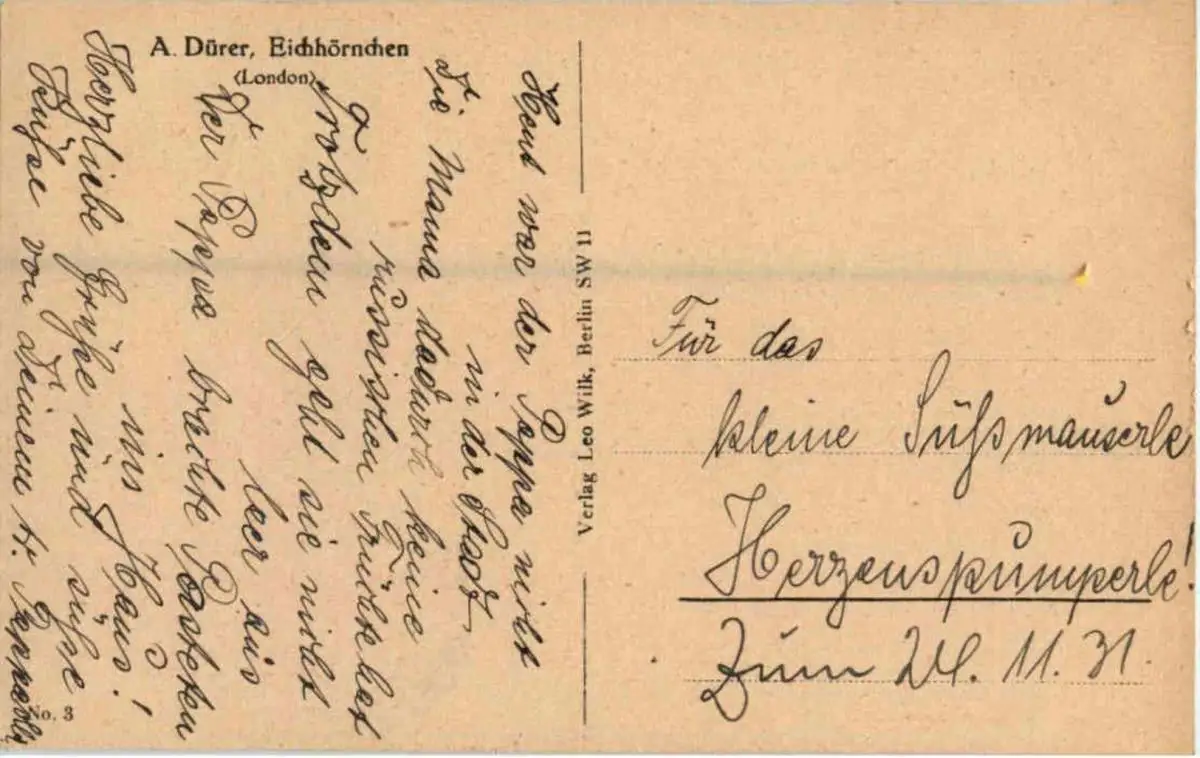 A. Dürer, Eichhörnchen
(London)
Heut war der Pappa nicht
in der Stadt
Die Mama dadurch keine
russischen Früchte hat
Trotzdem geht sie nicht
leer aus
Der Pappa brachte Pasteten
ins Haus!
Herzliebe Grüße und süße
Küße von Deinem tr.
No. 3
Verlag Leo Wilk, Berlin SW 11
Für das
kleine Süßmauserle
Herzenspumperle!
Zum 24. 11. 31.